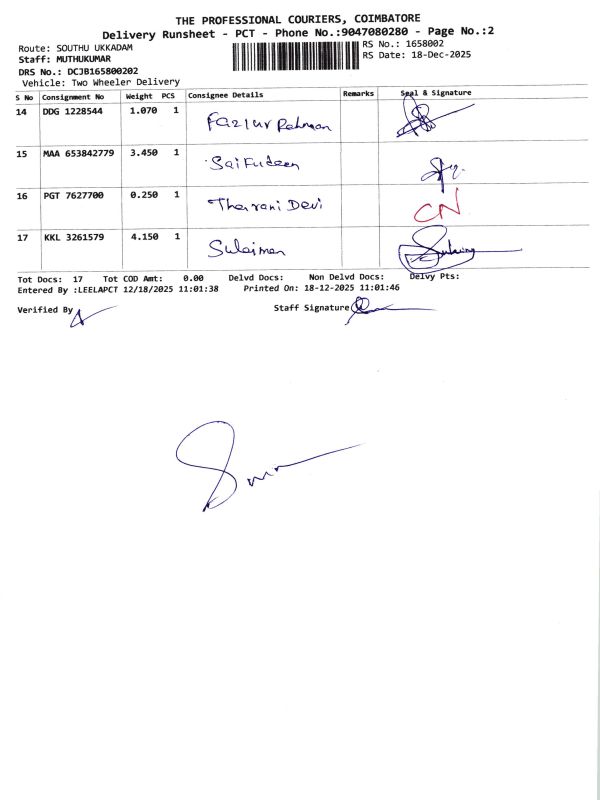 THE PROFESSIONAL COURIERS, COIMBATORE
Delivery Runsheet - PCT - Phone No.:9047080280 - Page No.:2
Route: SOUTHU UKKADAM
RS No.: 1658002
Staff: MUTHUKUMAR
RS Date: 18-Dec-2025
DRS No.: DCJB165800202
Vehicle: Two Wheeler Delivery
S No Consignment No Weight PCS Consignee Details Remarks Seal & Signature
14 DDG 1228544 1.070 1 Fazlur Rahman
15 MAA 653842779 3.450 1 Saifudeen
16 PGT 7627700 0.250 1 Tharani Devi CN
17 KKL 3261579 4.150 1 Sulaiman
Tot Docs: 17 Tot COD Amt: 0.00 Delvd Docs: Non Delvd Docs: Delvy Pts:
Entered By :LEELAPCT 12/18/2025 11:01:38 Printed On: 18-12-2025 11:01:46
Verified By Staff Signature